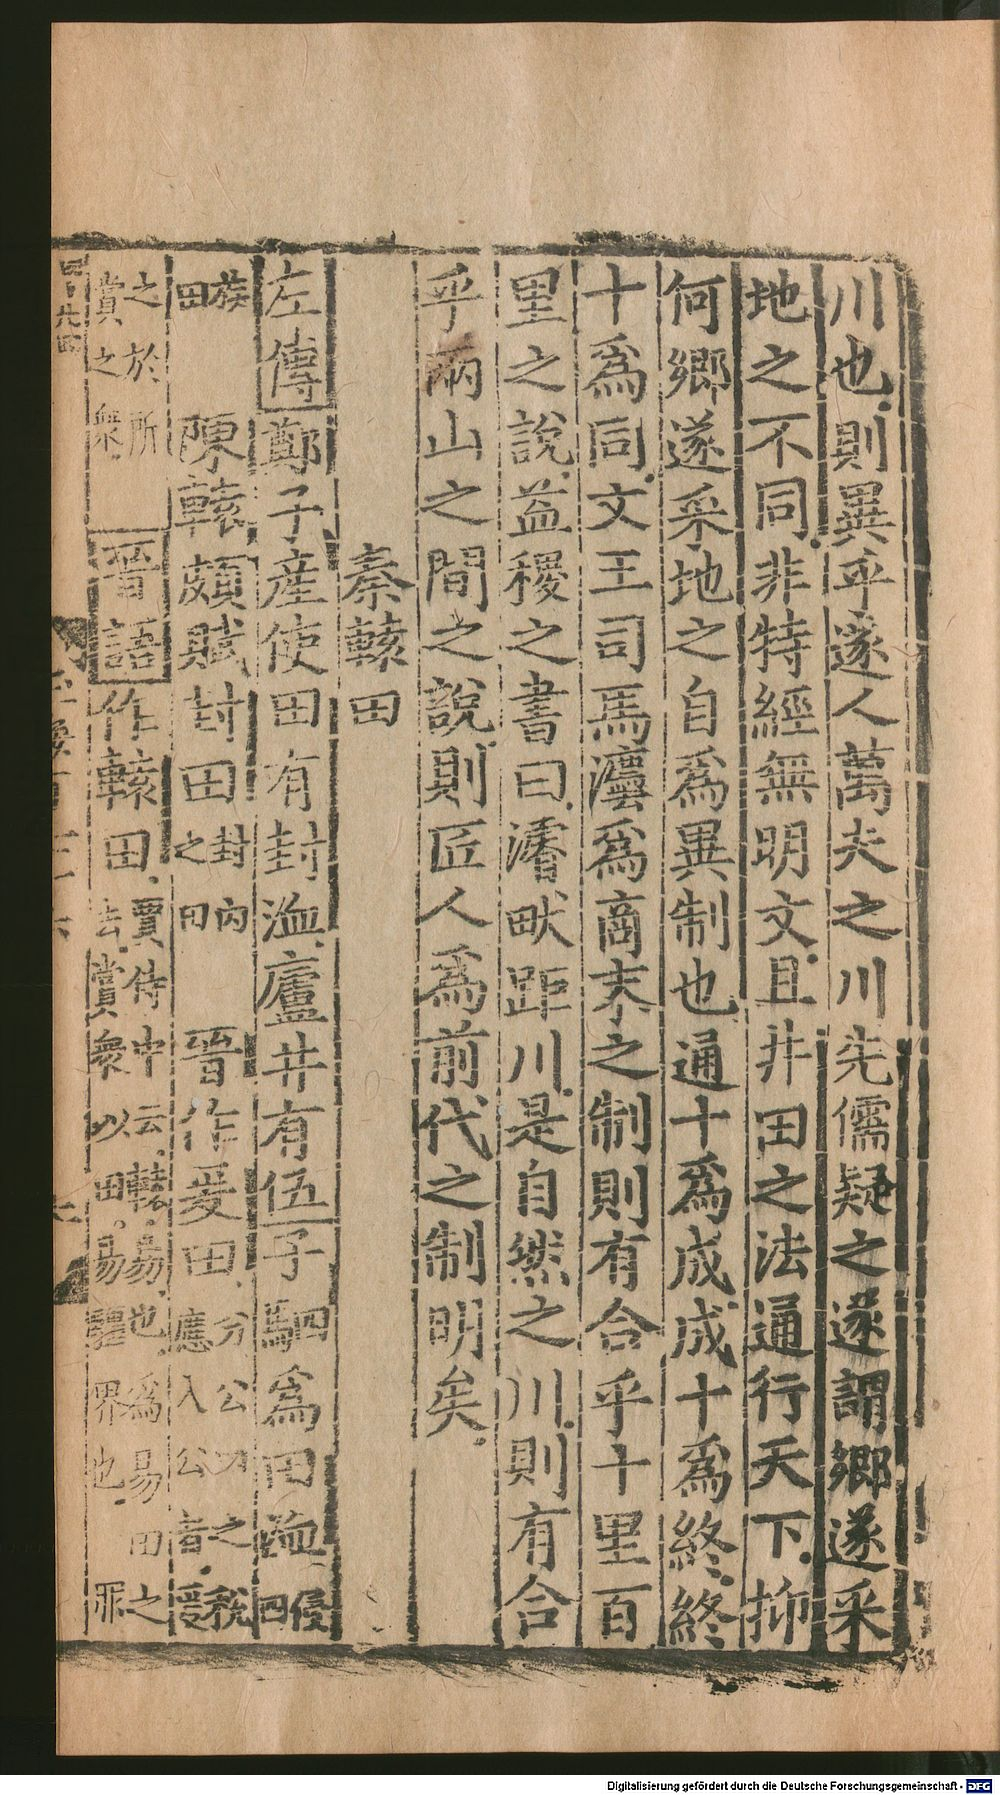 川也則異乎遂人萬夫之川先儒疑之遂謂鄉遂采
地之不同非特經無明文且井田之法通行天下抑
何鄉遂采地之自為異制也通十為成成十為終終
十為同文王司馬灋為商末之制則有合乎十里百
里之說益稷之書曰濬畎距川是自然之川則有合
乎兩山之間之說則匠人為前代之制明矣
秦轅田
左傳鄭子産使田有封洫廬井有伍子駟為田洫侵四
族田 陳轅頗賦封田封內之田 晉作爰田分公田之稅應入公者爰
之於所賞之衆 晉語作轅田賈侍中云轅易也為易田之法賞衆以田易疆界也 罪
Digitalisierung gefördert durch die Deutsche Forschungsgemeinschaft - DFG